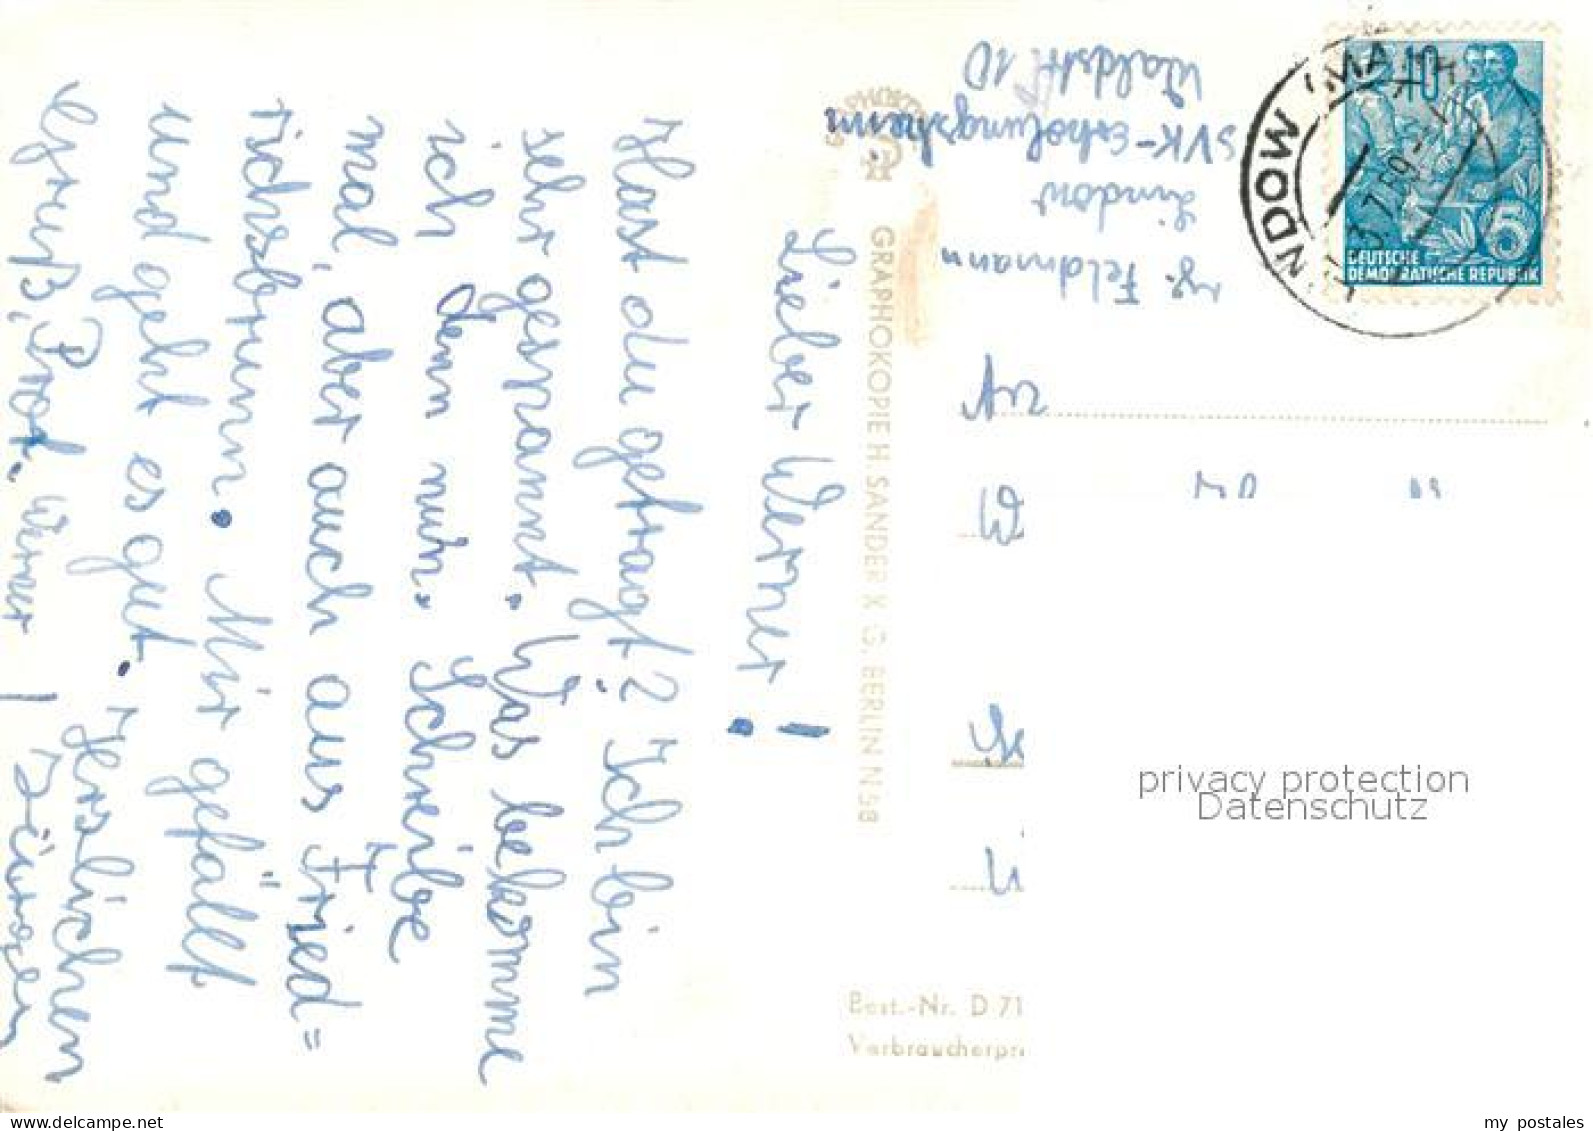 Lieber Werner!
Hast du gefragt? Ich bin
sehr gespannt. Was bekomme
ich denn nun. Schreibe
mal, aber auch aus Fried=
richsbrunn. Mir gefällt
und geht es gut. Herzlichen
Gruß, Prof. Werner! Jürgen
GRAPHOKOPIE H. SANDER K G, BERLIN N 58
Feldmann
Lindow
SVK-Erholungsheim
Waldstr. 10
NDOW (MARK)
3.7.59
10
5
DEUTSCHE
DEMOKRATISCHE REPUBLIK
privacy protection
Datenschutz
Best.-Nr. D 71
Verbraucherpr
my postales
www.delcampe.net